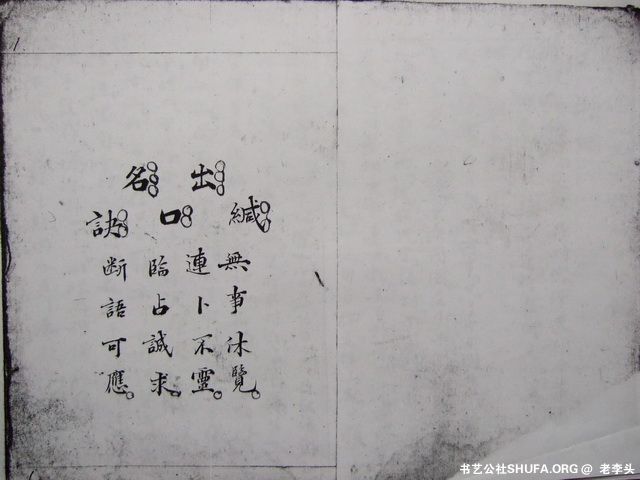 緘無事休覽。
出連卜不靈。
口臨占誠求。
名
訣断語可應。
书艺公社SHUFA.ORG @ 老李头